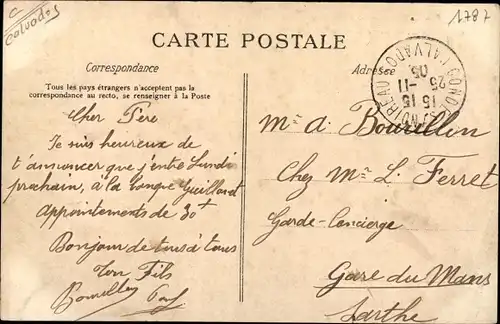 Calvados
1787
CARTE POSTALE
Correspondance
Adresse
Tous les pays étrangers n'acceptent pas la
correspondance au recto, se renseigner à la Poste
CONDÉ S/ NOIREAU CALVADOS
15 15
25 -11
05
Cher Père
Je suis heureux de
t'annoncer que j'entre Lundi
prochain, à la banque Guillouet
appointements de 30f
Bonjour de tous à tous
Ton Fils
Bourellon
Mr A. Bourellon
Chez Mr L. Ferret
Garde-Concierge
Gare du Mans
Sarthe